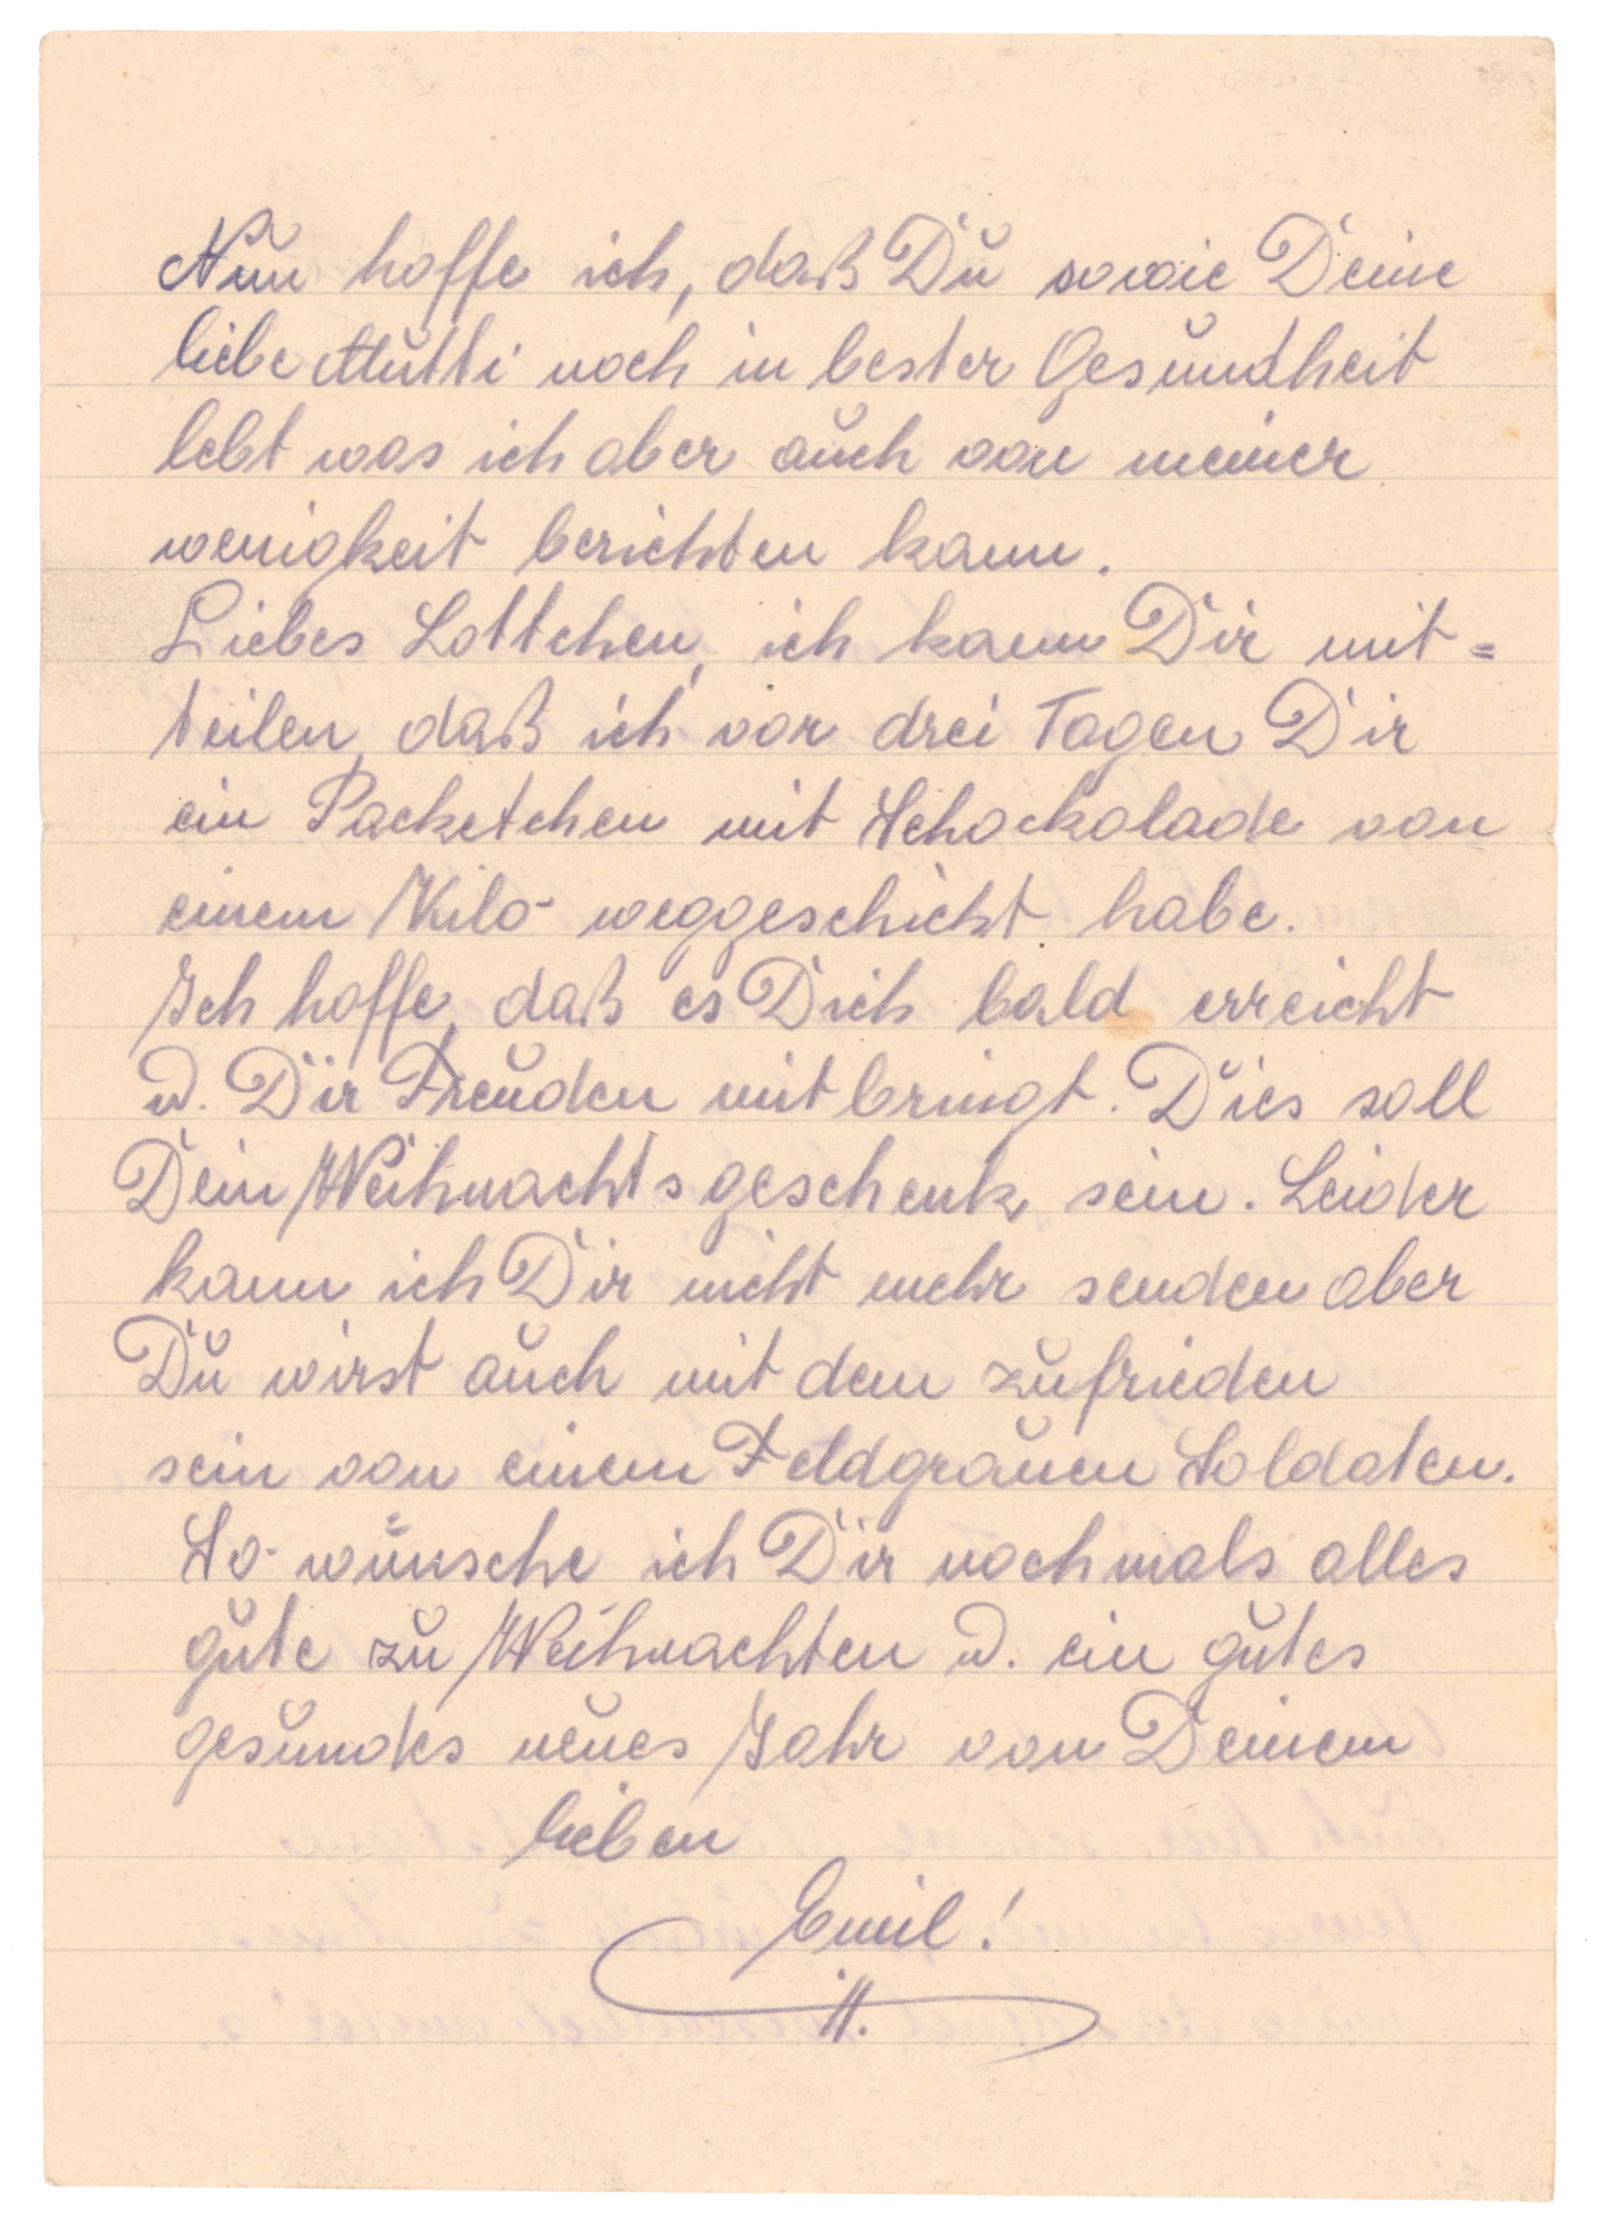 Nun hoffe ich, daß Du sowie Deine
liebe Mutti noch in bester Gesundheit
lebt was ich aber auch von meiner
wenigkeit berichten kann.
Liebes Lottchen, ich kann Dir mit=
teilen, daß ich vor drei Tagen Dir
ein Packetchen mit Schockolade von
einem Kilo weggeschickt habe.
Ich hoffe, daß es Dich bald erreicht
u. Dir Freuden mit bringt. Dies soll
Dein Weihnachtsgeschenk sein. Leider
kann ich Dir nicht mehr senden aber
Du wirst auch mit dem zufrieden
sein von einem Feldgrauen Soldaten.
So wünsche ich Dir nochmals alles
gute zu Weihnachten u. ein gutes
gesundes neues Jahr von Deinem
lieben
Emil!